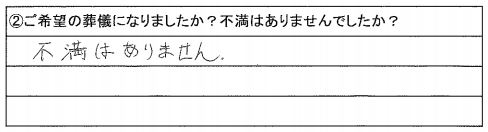 ②ご希望の葬儀になりましたか？不満はありませんでしたか？
不満はありません.